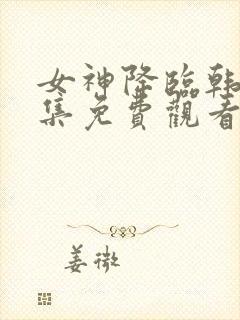 女神降臨韓
集免費觀看
姜微